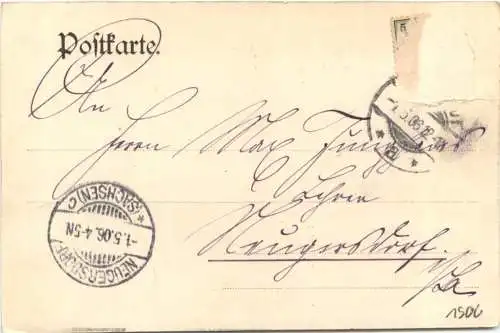 Postkarte.
5
An
Herrn Max Jungnickel
Lehrer
Neugersdorf.
i/Sa
-1.5.06.12
NEUGERSDORF
-1.5.06.4-5N
* (SACHSEN) C
1506